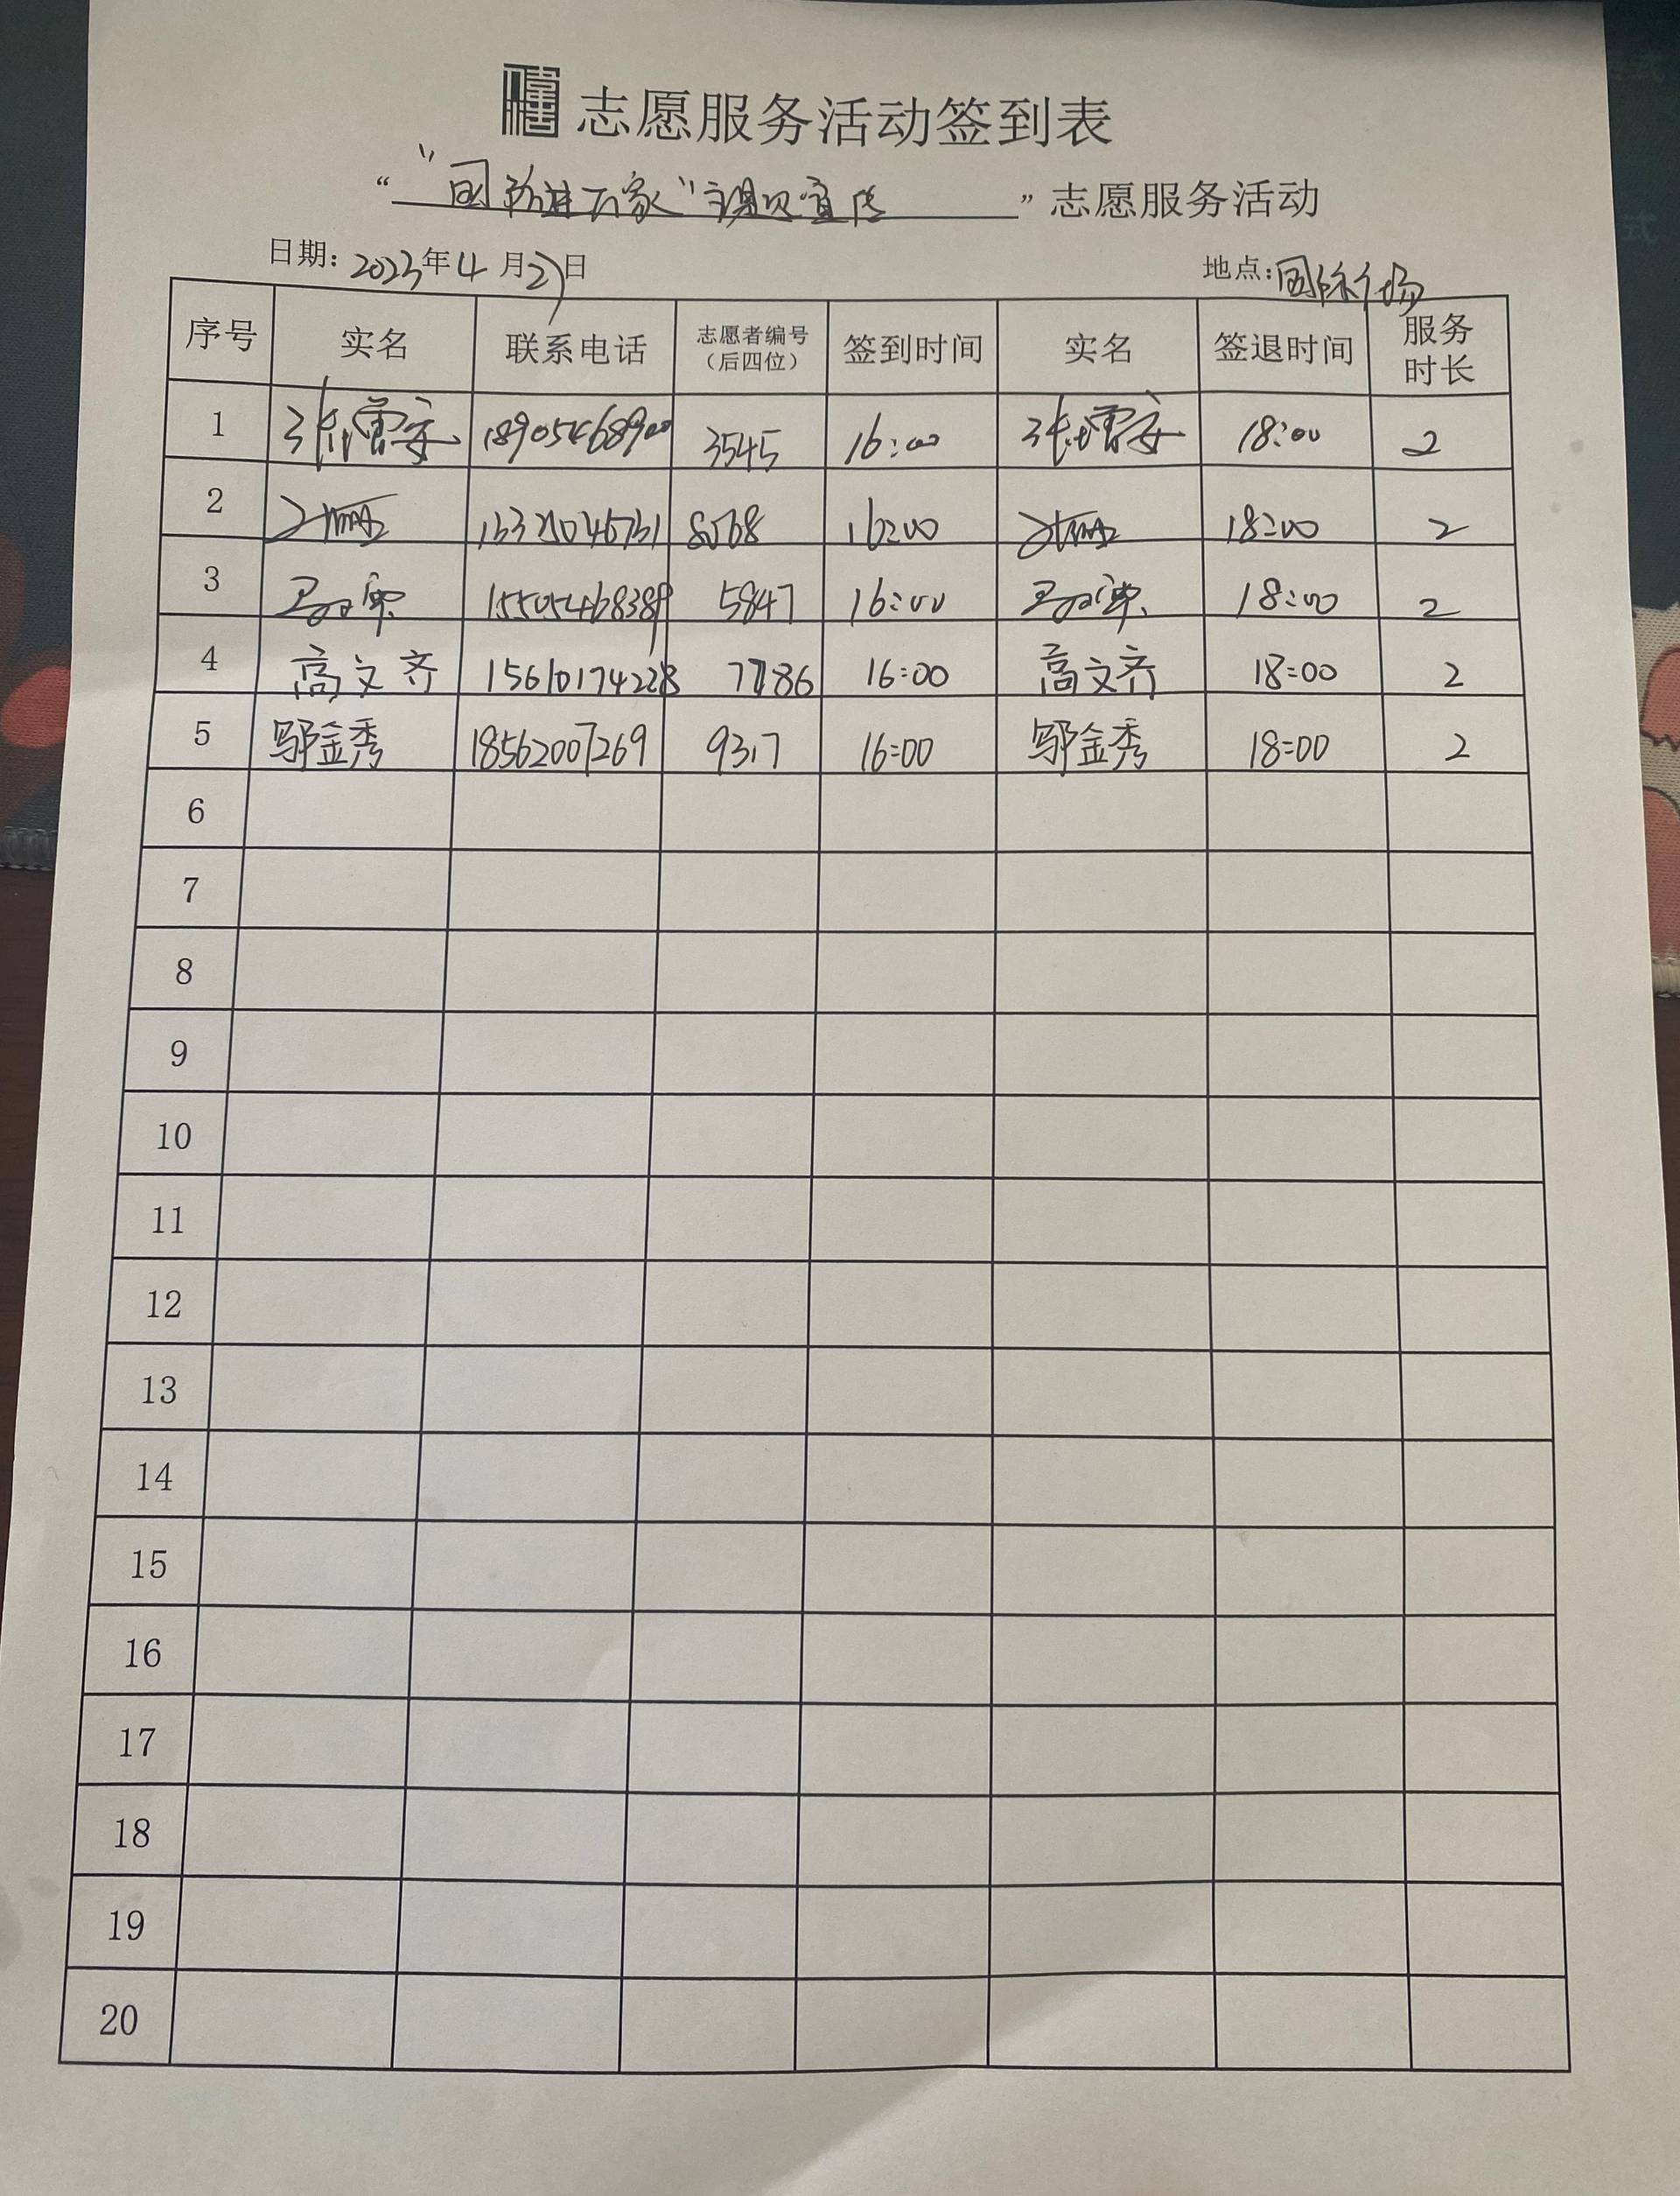 志愿服务活动签到表
“ “国防进万家”主题宣传 ” 志愿服务活动
日期: 2023年4月27日 地点:国际广场
序号 实名 联系电话 志愿者编号（后四位） 签到时间 实名 签退时间 服务时长
1 张雪安 18905468900 3545 16:00 张雪安 18:00 2
2 8568 16:00 18:00 2
3 15505468389 5847 16:00 18:00 2
4 高文齐 15610174228 7786 16:00 高文齐 18:00 2
5 邬金秀 18562007269 9317 16:00 邬金秀 18:00 2
6
7
8
9
10
11
12
13
14
15
16
17
18
19
20